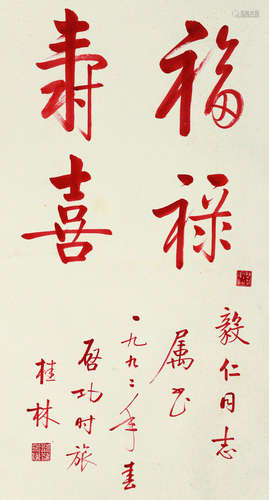 福禄
寿喜
毅仁同志
属书
一九九二年春
启功时旅
桂林